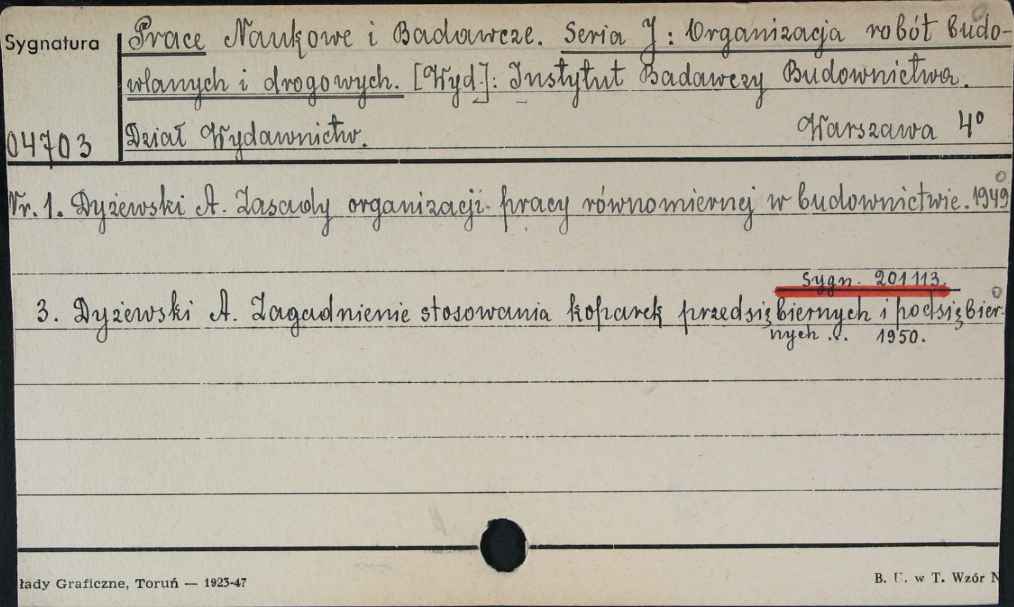 Sygnatura
04703
Prace Naukowe i Badawcze. Seria J : Organizacja robót budo-
wlanych i drogowych. [Wyd]: Instytut Badawczy Budownictwa.
Dział Wydawnictw. Warszawa 4°
Nr. 1. Dyżewski A. Zasady organizacji pracy równomiernej w budownictwie. 1949
Sygn. 201113.
3. Dyżewski A. Zagadnienie stosowania koparek przedsiębiernych i podsiębier-
nych ... 1950.
łady Graficzne, Toruń — 1923-47
B. U. w T. Wzór N